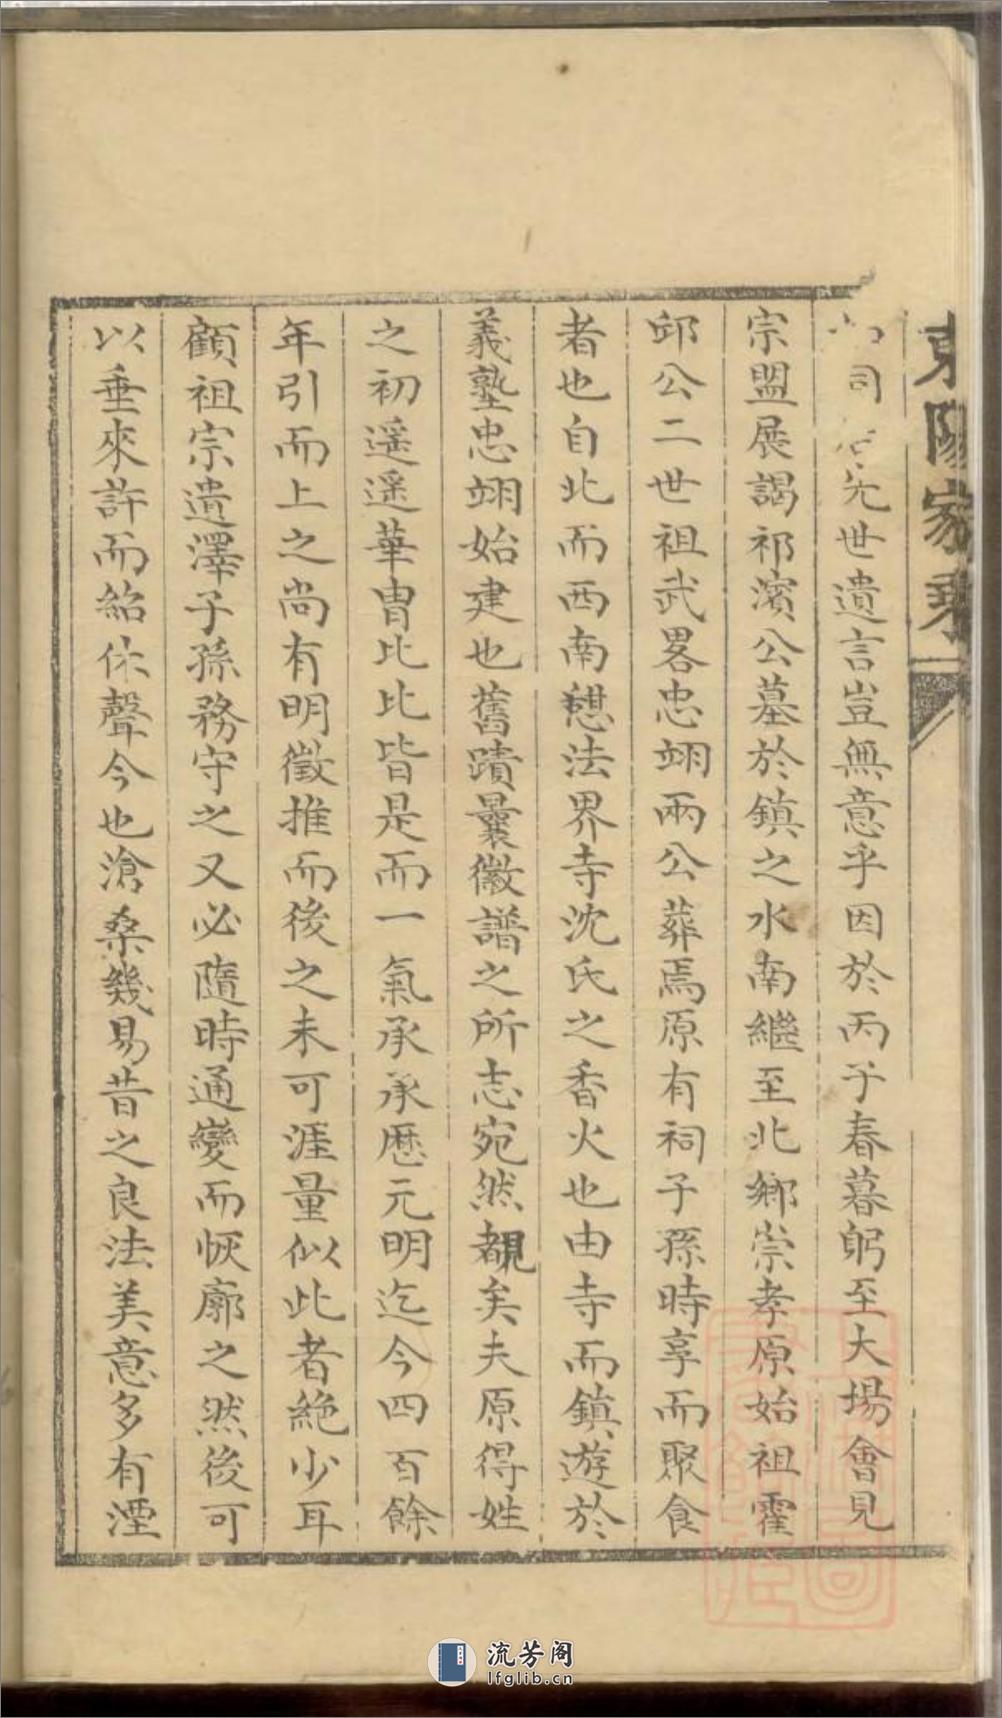 東陽家乘
先世遺言豈無意乎因於丙子春暮躬至大場會見
宗盟展謁祁濱公墓於鎮之水南繼至北鄉崇孝原始祖霍
邱公二世祖武畧忠翊兩公葬焉原有祠子孫時享而聚食
者也自北而西南憇法界寺沈氏之香火也由寺而鎮遊於
義塾忠翊始建也舊蹟曩徽譜之所志宛然覩矣夫原得姓
之初遥遥華胄比比皆是而一氣承承歷元明迄今四百餘
年引而上之尚有明徵推而後之未可涯量似此者絶少耳
顧祖宗遺澤子孫務守之又必隨時通變而恢廓之然後可
以垂來許而紹休聲今也滄桑幾易昔之良法美意多有湮
流芳阁
lfglib.cn